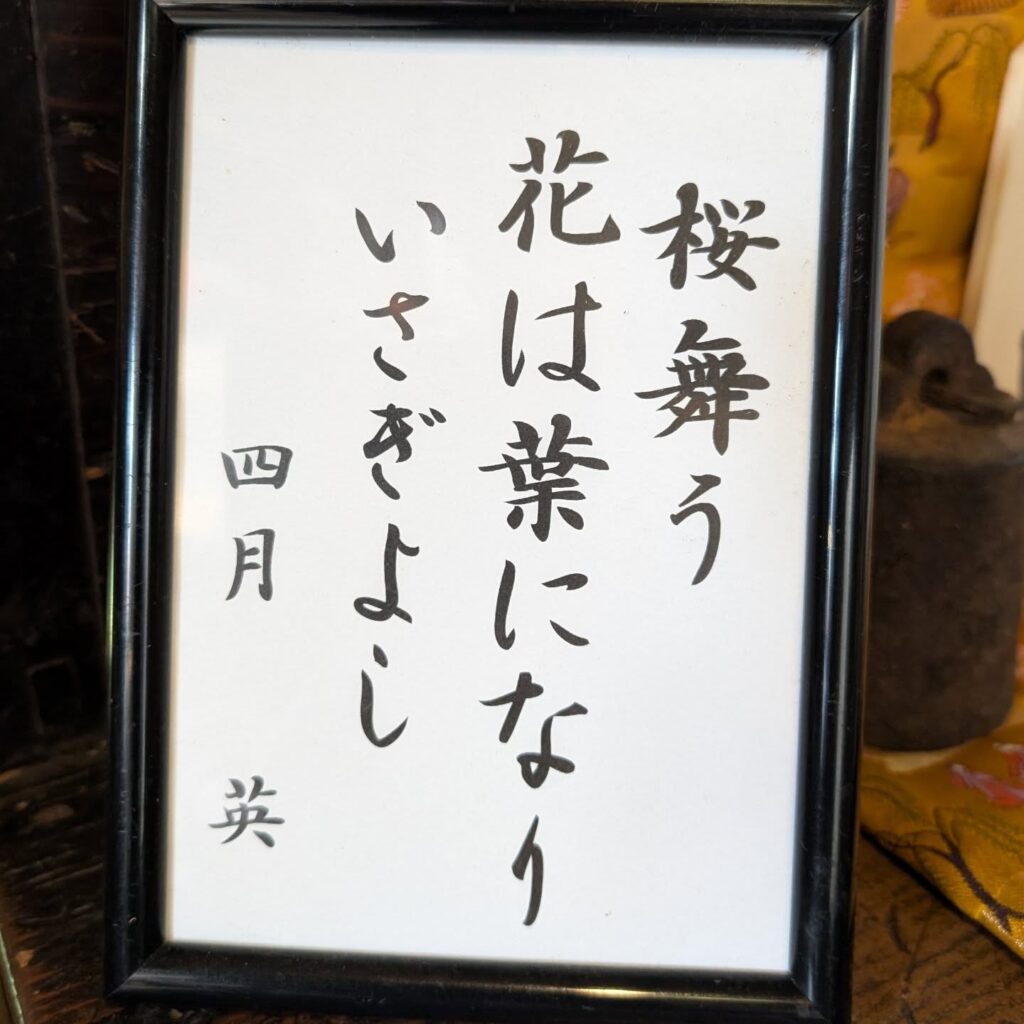 桜舞う
花は葉になり
いさぎよし
四月 英